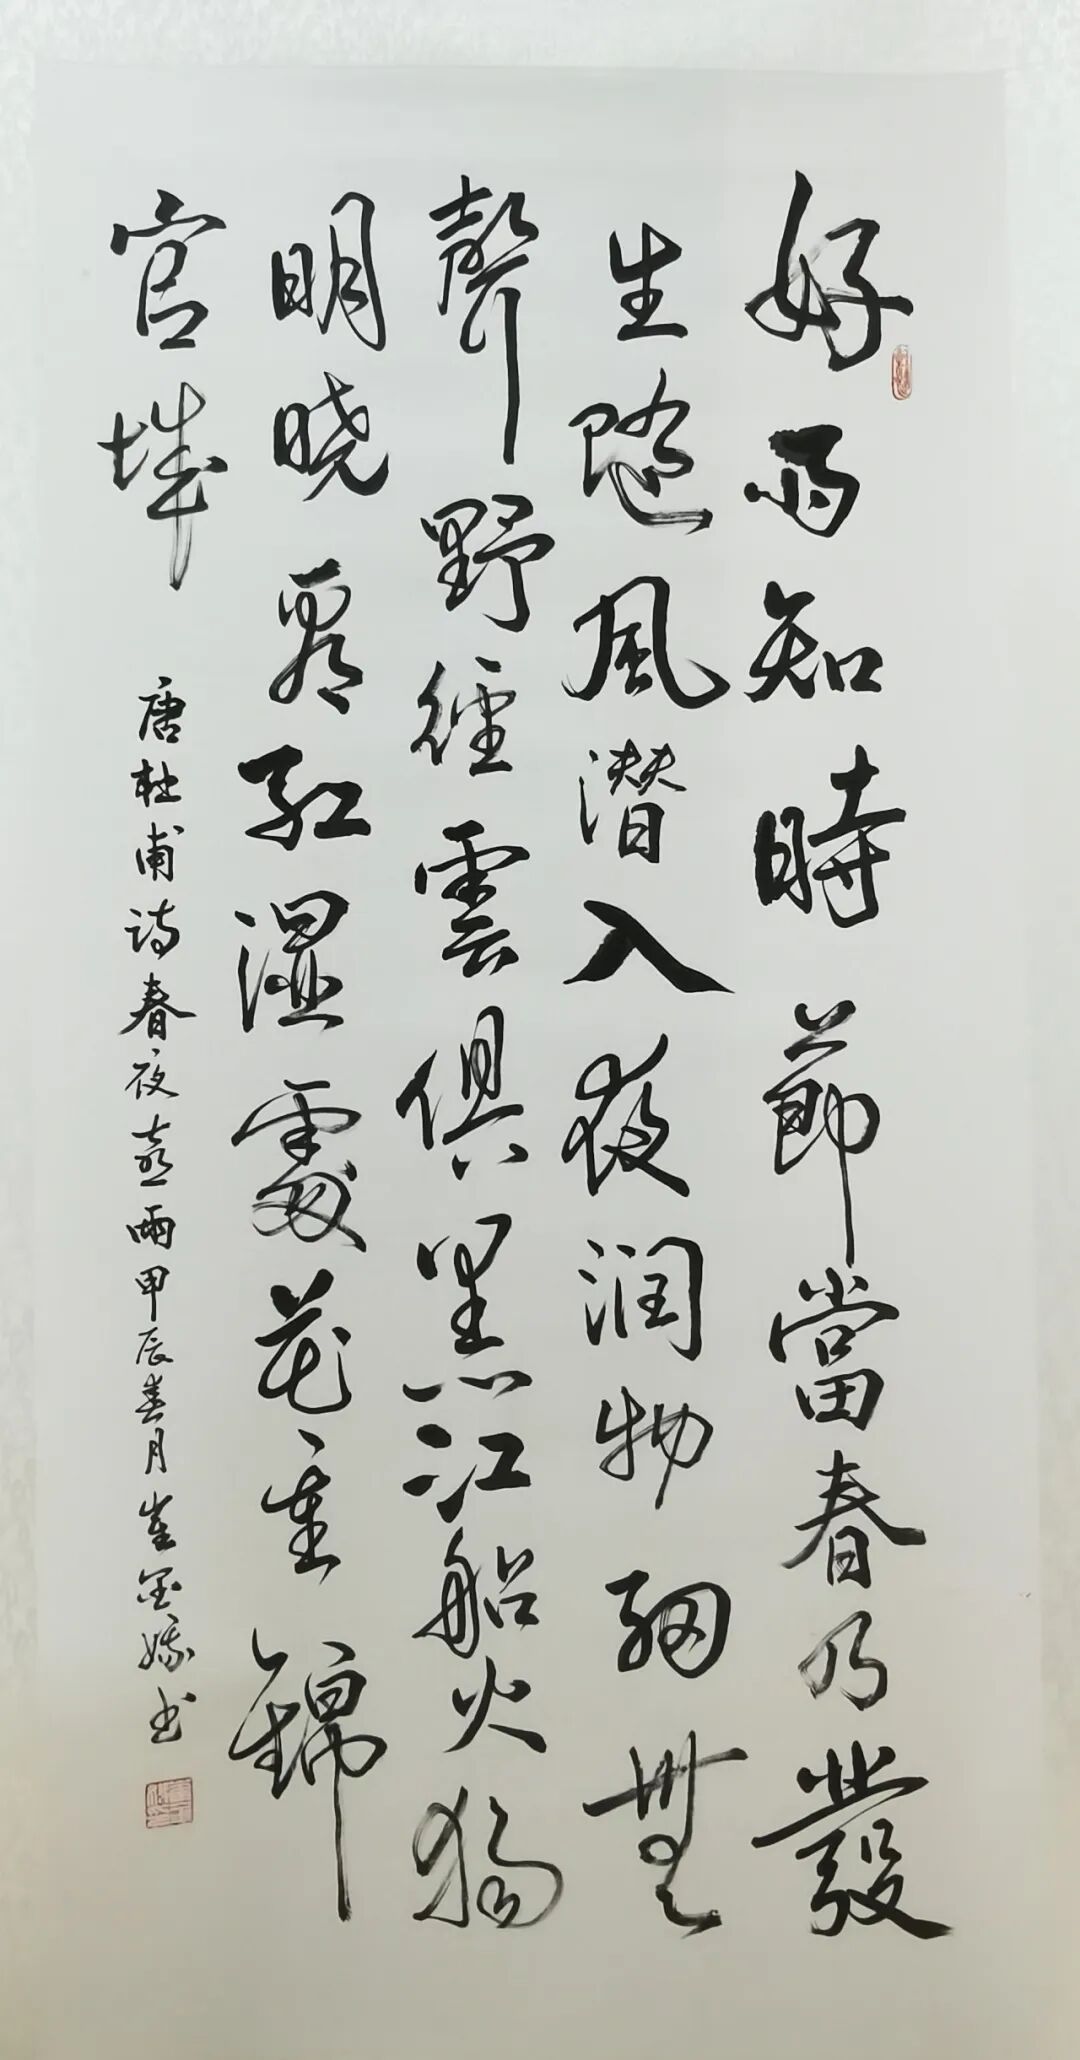 好雨知時節當春乃發
生隨風潜入夜润物細無
聲野徑雲俱黑江船火獨
明曉看紅濕處花重錦
官城
唐杜甫詩春夜喜雨甲辰春月崔金娥书